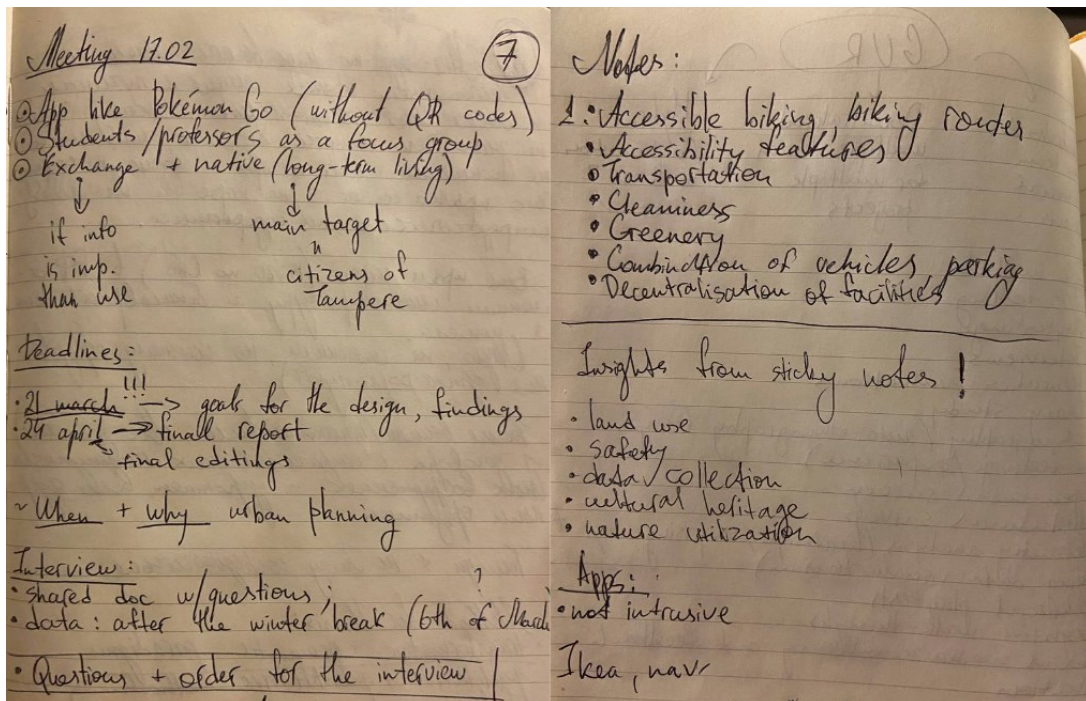 Meeting 17.02
7
App like Pokémon Go (without QR codes)
Students/professors as a focus group
Exchange + native (long-term living)
↓ ↓
if info main target
is imp. "
than use citizens of
Tampere
Deadlines:
!!!
• 21 march → goals for the design, findings
• 24 april → final report
final editings
~ When + why urban planning
Interview:
• shared doc w/questions; ?
• data: after the winter break (6th of March
• Questions + order for the interview
Notes:
1: Accessible biking, biking routes
• Accessibility features
• Transportation
• Cleaniness
• Greenery
• Combination of vehicles, parking
• Decentralisation of facilities
Insights from sticky notes!
• land use
• safety
• data collection
• cultural heritage
• nature utilization
Apps:
• not intrusive
Ikea,